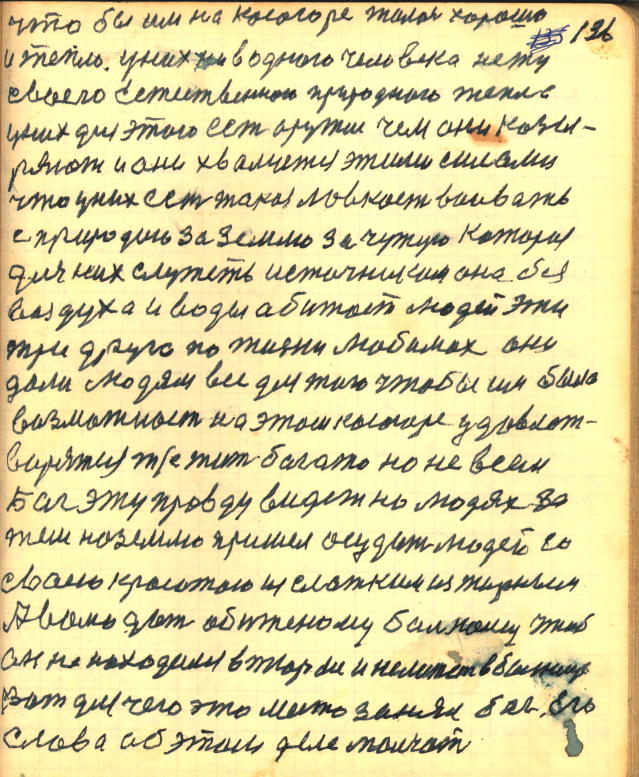 что бы им на косогоре жилося хорошо 136
и тепло. у них ни водного человека нету
своего естественного природного тепла
у них для этого ест оружие чем они козы-
ряют и они хвалистя этими силами
что у них ест такая ловкост воеват
с природою за землю за чужую которая
для них служеть источником она без
воздуха и воды абитает людей эти
три друга по жизни любимах они
дали людям все для того чтобы им была
возможност на этом косогоре удовлет-
варятся жт богато но не всем
Бог эту правду видет на людях за
тем на землю пришел осудит людей со
своею красотою и слатким и жирным
А волю дат обиженому больному чтоб
он не находился в тюрме и не в больнице
Вот для чего это место занял Бог. Его
слова об этом деле молчат